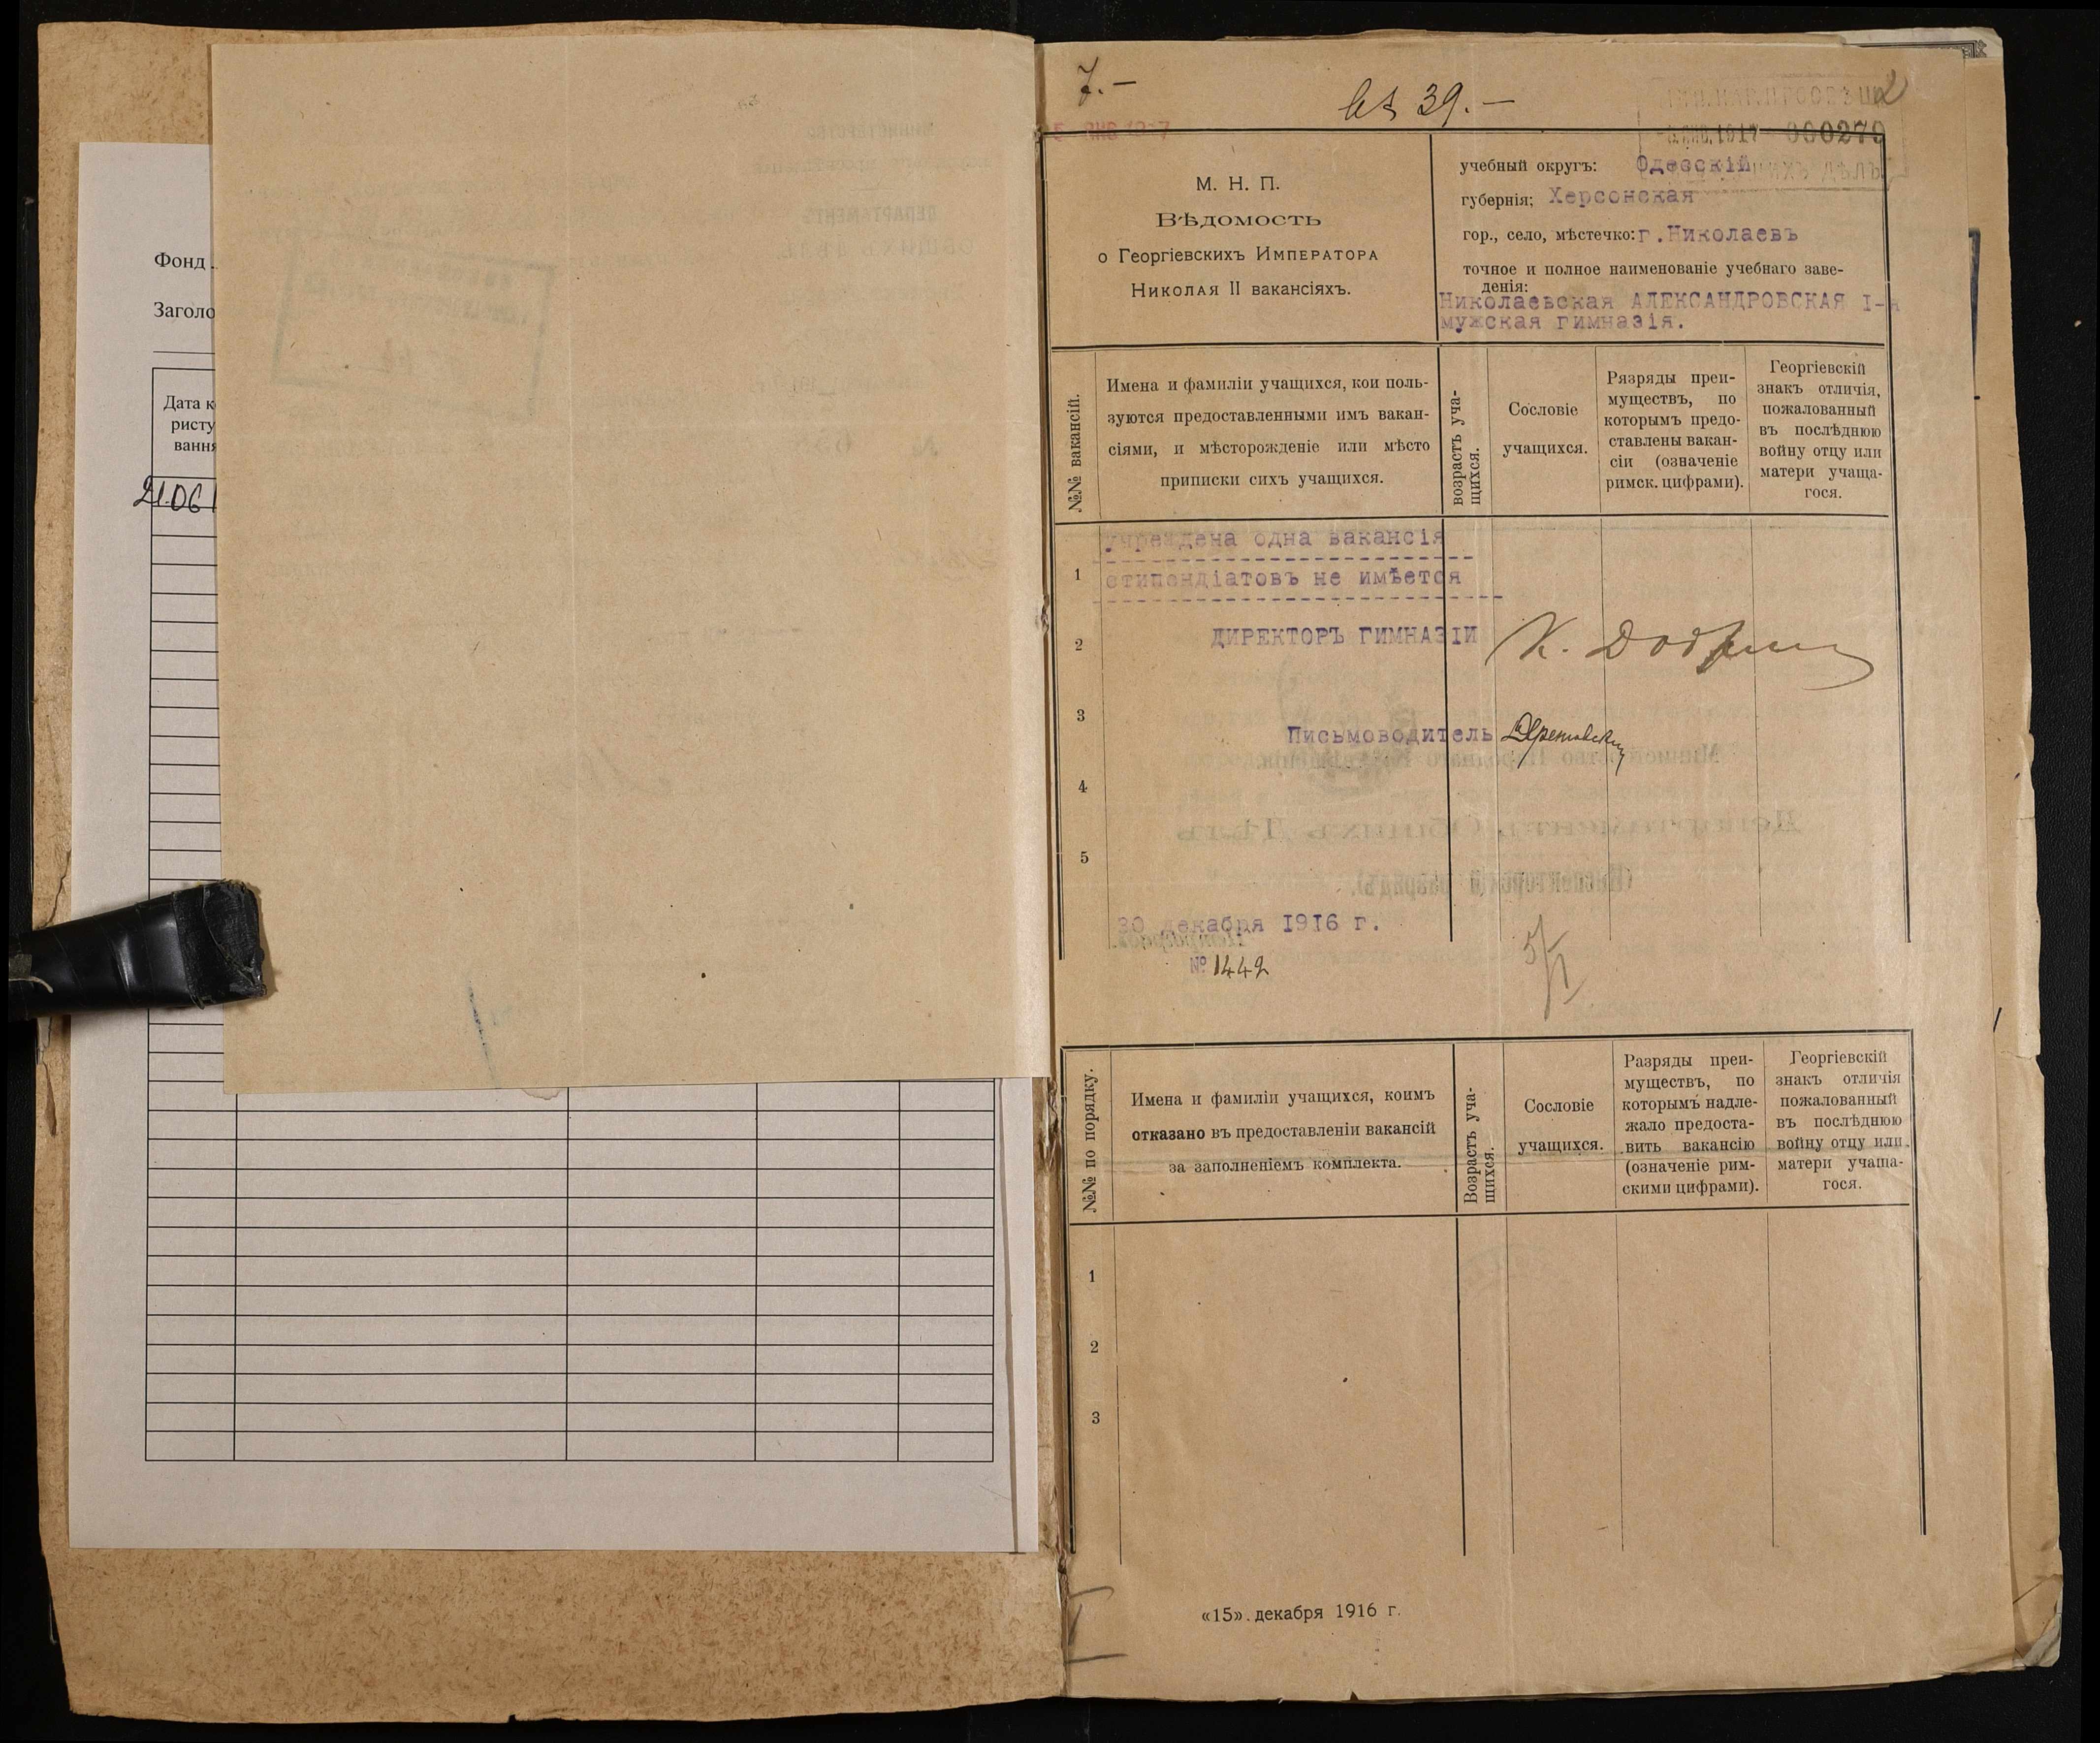 Фонд
Заголо
Дата к
ристу
вання
21.06
7.–
39.–
000279
М. Н. П.
Вѣдомость
о Георгіевскихъ Императора
Николая II вакансіяхъ.
учебный округъ: Одесскій
губернія; Херсонская
гор., село, мѣстечко: г.Николаевъ
точное и полное наименованіе учебнаго заве-
денія:
Николаевская АЛЕКСАНДРОВСКАЯ I-я
мужская гимназія.
№№ вакансій.
Имена и фамиліи учащихся, кои поль-
зуются предоставленными имъ вакан-
сіями, и мѣсторожденіе или мѣсто
приписки сихъ учащихся.
возрастъ уча-
щихся.
Сословіе
учащихся.
Рязряды преи-
муществъ, по
которымъ предо-
ставлены вакан-
сіи (означеніе
римск. цифрами).
Георгіевскій
знакъ отличія,
пожалованный
въ послѣднюю
войну отцу или
матери учаща-
гося.
учреждена одна вакансія
1 стипендіатовъ не имѣется
2 ДИРЕКТОРЪ ГИМНАЗІИ К.
3
Письмоводитель
4
5
30 декабря 1916 г.
№ 1442
5/I
№№ по порядку.
Имена и фамиліи учащихся, коимъ
отказано въ предоставленіи вакансій
за заполненіемъ комплекта.
Возрастъ уча-
щихся.
Сословіе
учащихся.
Разряды преи-
муществъ, по
которымъ надле-
жало предоста-
вить вакансію
(означеніе рим-
скими цифрами).
Георгіевскій
знакъ отличія
пожалованный
въ послѣднюю
войну отцу или
матери учаща-
гося.
1
2
3
«15». декабря 1916 г.